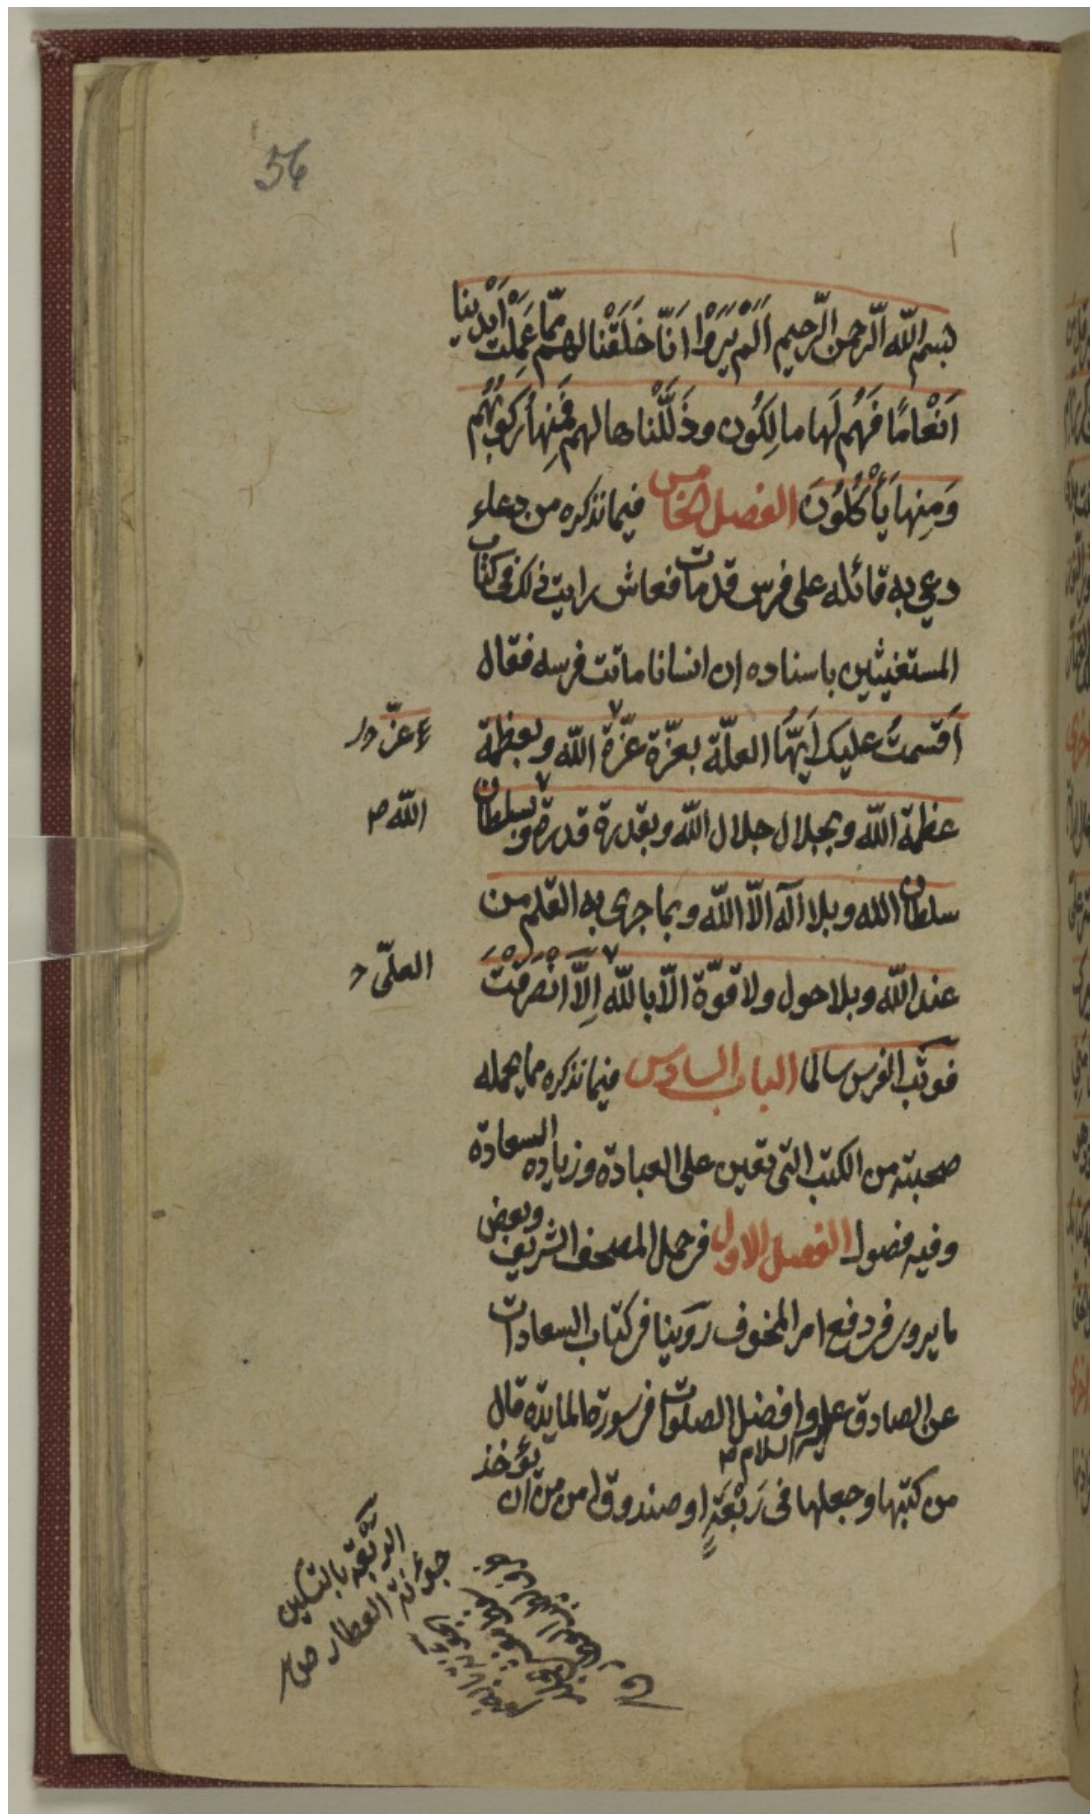 56
بسم الله الرحمن الرحيم اَلَمْ يَرَوْا اَنَّا خَلَقْنا لهم مِمّا عَمِلَتْ اَيْدينا
اَنْعامًا فَهُم لَها مالِكُون وذَلَّلْنا هالهم فَمِنها رَكُوبُهُم
وَمِنها يَأْكُلُونَ الفصل الخامس فيما نذكره من دعاء
دعي به قائله على فرس قد مات فعاش رايت ذلك في كتاب
المستغيثين باسناده ان انسانا ماتت فرسه فقال
اَقسمتُ عليك اَيَّتُها العلّة بعزّة عزّة الله وبعظمة
عظمة الله وبجلال جلال الله وبقدرة قدرة وبسلطان
سلطان الله وبلا اله الّا الله وبما جرى به القلم من
عند الله وبلا حول ولا قوّة الّا بالله اِلّا انْصَرَفْتَ
فوثب الفرس سالما الباب السادس فيما نذكره مما يحمله
صحبته من الكتب التى تعين على العبادة وزيادة السعادة
وفيه فصول الفصل الاول فى حمل المصحف الشريف وبعض
ما يروى فى دفع امر المخوف روينا فى كتاب السعادات
عن الصادق عليه وافضل الصلوات فى سورة المايدة قال
من كتبها وجعلها فى رَبْعَةٍ او صندوق امن من ان يؤخذ
عزّ
الله
العلىّ
السلام
الرَبْعَة بالتسكين
جؤنة العطار